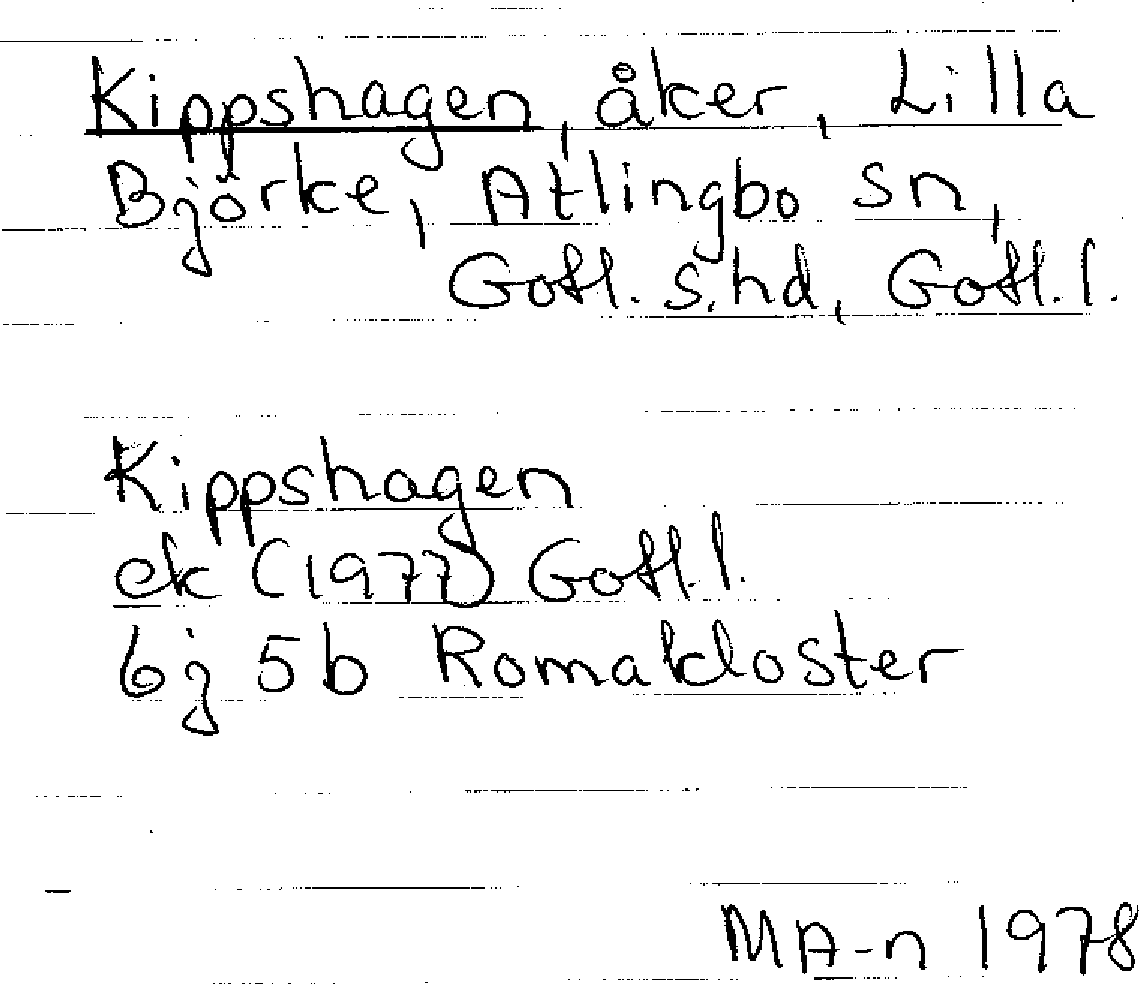 Kippshagen, åker, Lilla
Björke, Atlingbo sn,
Gotl. s. hd, Gotl. l.
Kippshagen
ek (1977) Gotl. l.
6j 5b Romakloster
MA-n 1978